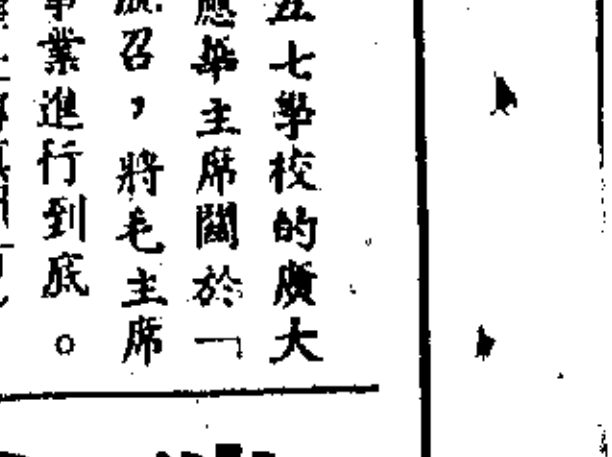 五七學校的廣大
應華主席關於「
召，將毛主席
事業進行到底。